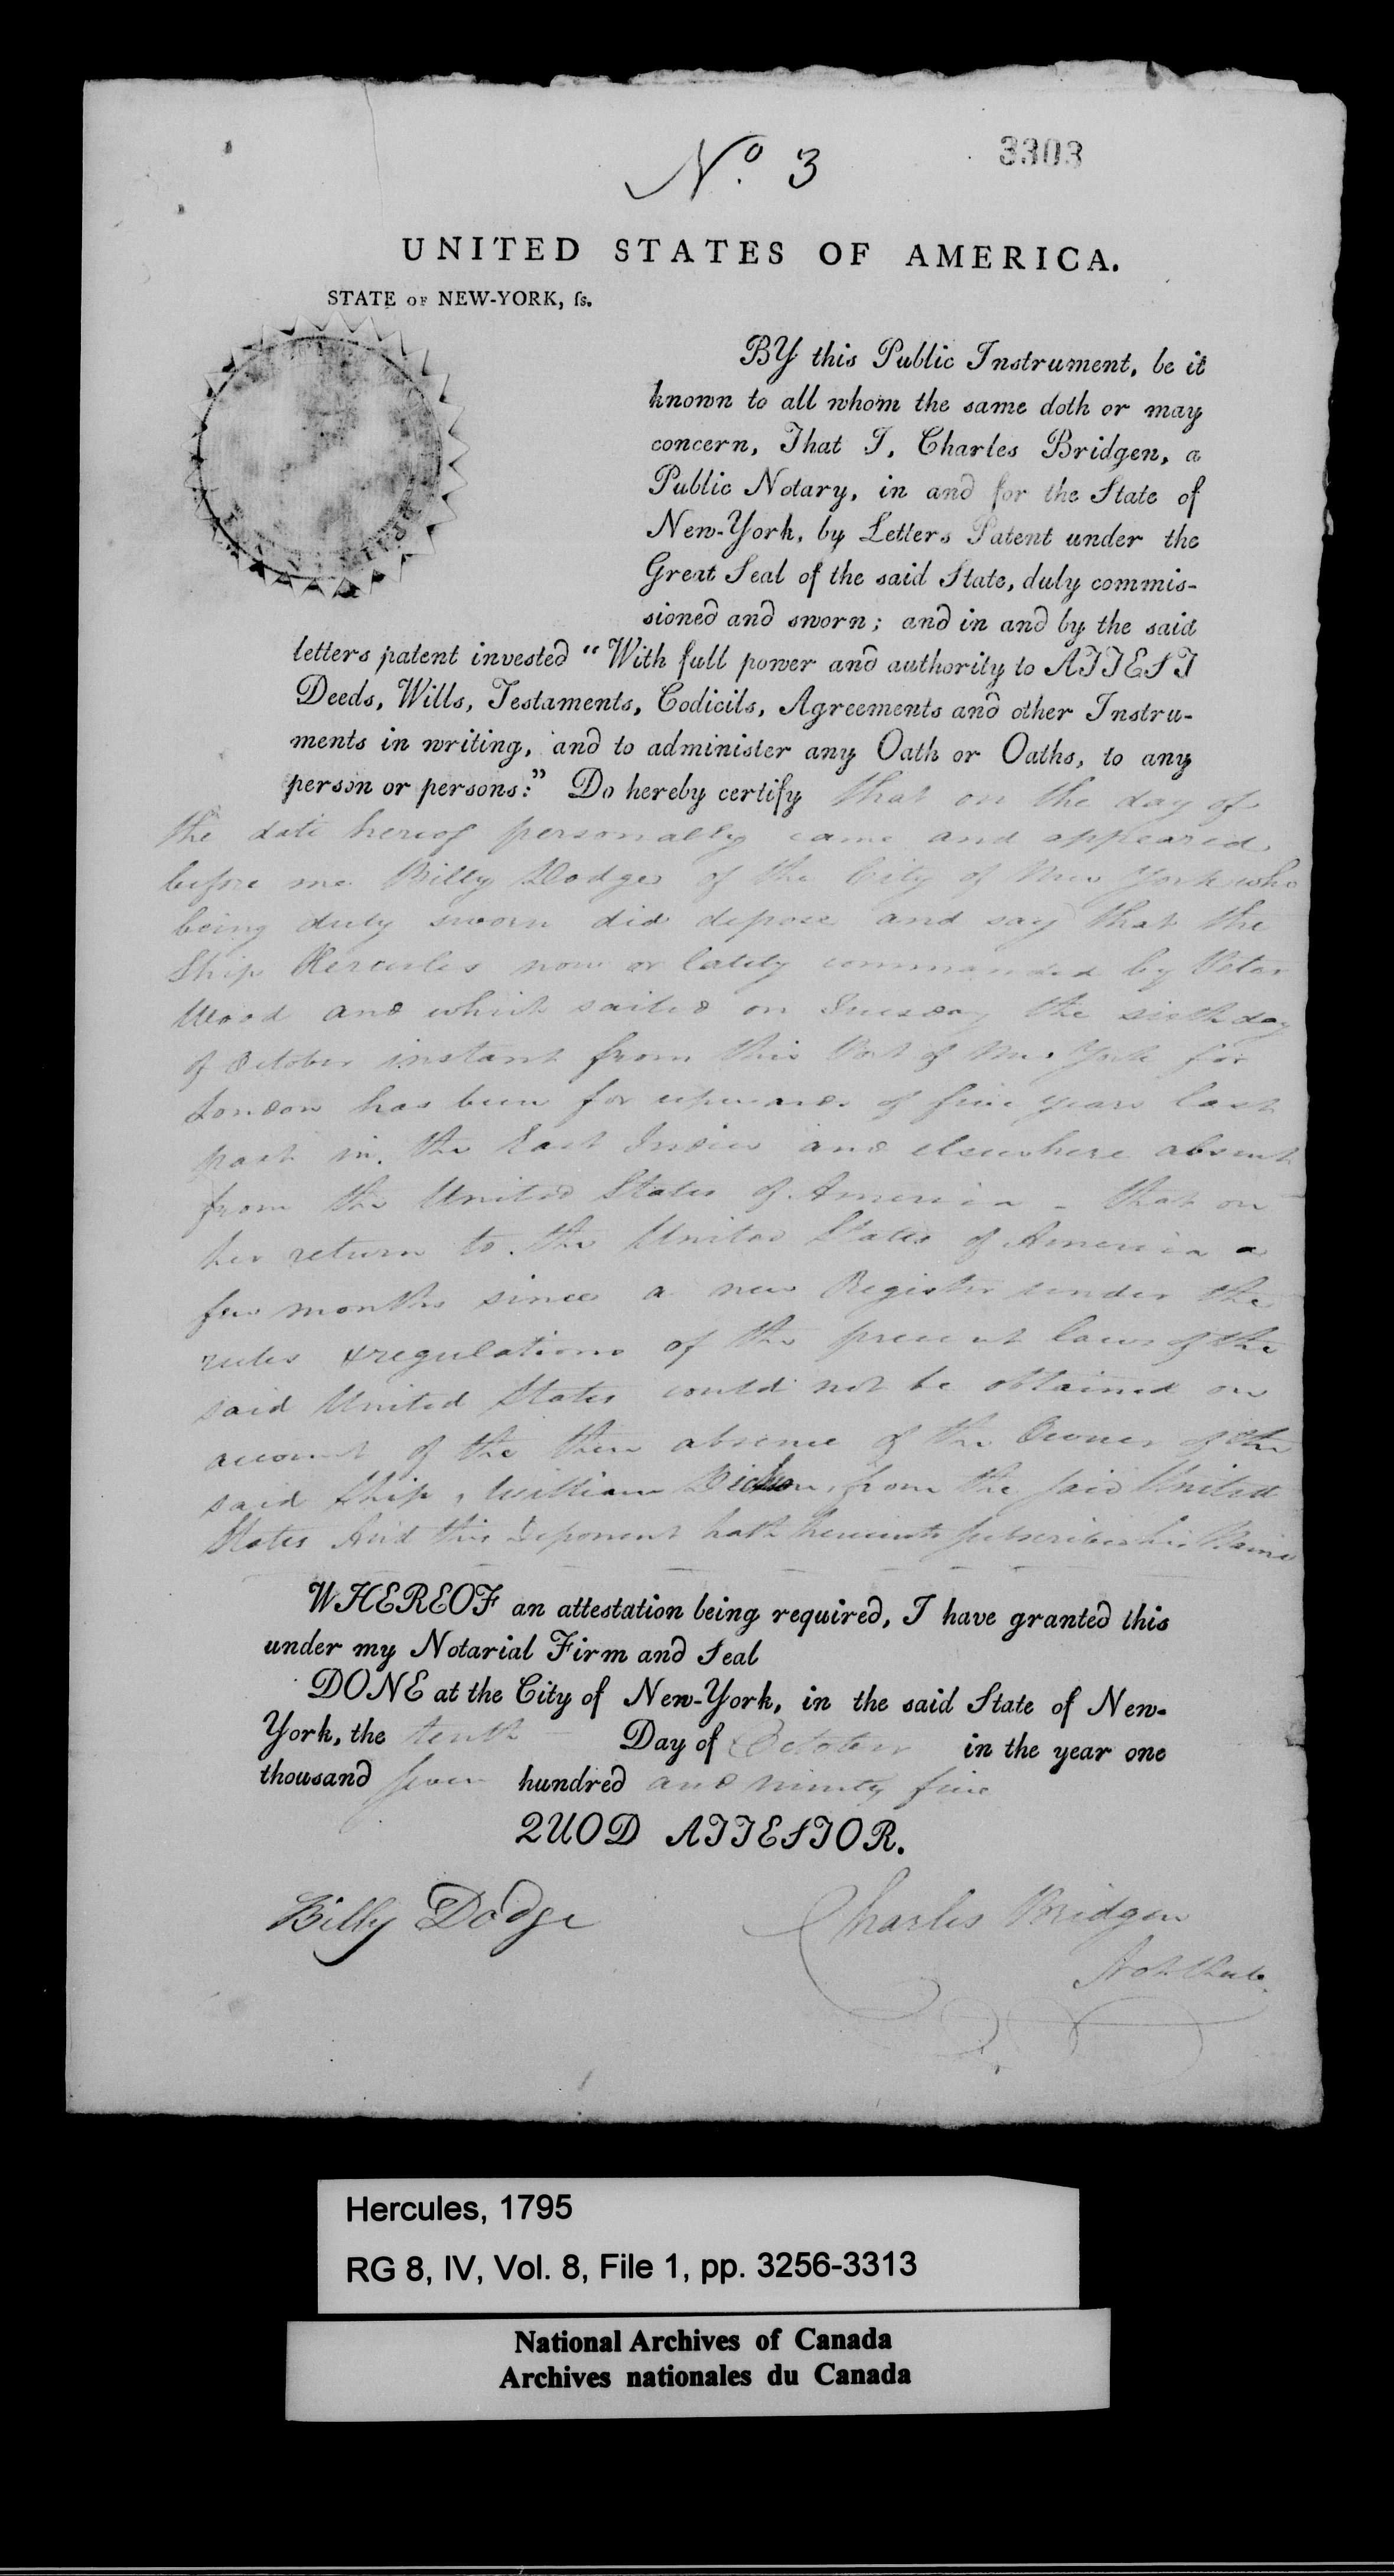 No. 3
3303
UNITED STATES OF AMERICA.
STATE OF NEW-YORK, ſs.
BY this Public Instrument, be it
known to all whom the same doth or may
concern, That I, Charles Bridgen, a
Public Notary, in and for the State of
New-York, by Letters Patent under the
Great Seal of the said State, duly commis-
sioned and sworn; and in and by the said
letters patent invested "With full power and authority to ATTEST
Deeds, Wills, Testaments, Codicils, Agreements and other Instru-
ments in writing, and to administer any Oath or Oaths, to any
person or persons:" Do hereby certify that on the day of
the date hereof personally came and appeared
before me Billy Dodge of the City of New York who
being duly sworn did depose and say that the
Ship Hercules now or lately commanded by Peter
Wood and which sailed on Tuesday the sixth day
of October instant from this Port of New York for
London has been for upwards of five years last
past in the East Indies and elsewhere absent
from the United States of America - that on
her return to the United States of America a
few months since a new Register under the
rules & regulations of the present laws of the
said United States could not be obtained on
account of the then absence of the Owner of the
said Ship, William from the said United
States And this Deponent hath hereunto subscribed his Name
WHEREOF an attestation being required, I have granted this
under my Notarial Firm and Seal
DONE at the City of New-York, in the said State of New-
York, the tenth Day of October in the year one
thousand seven hundred and ninety five
QUOD ATTESTOR.
Billy Dodge
Charles Bridgen
Hercules, 1795
RG 8, IV, Vol. 8, File 1, pp. 3256-3313
National Archives of Canada
Archives nationales du Canada